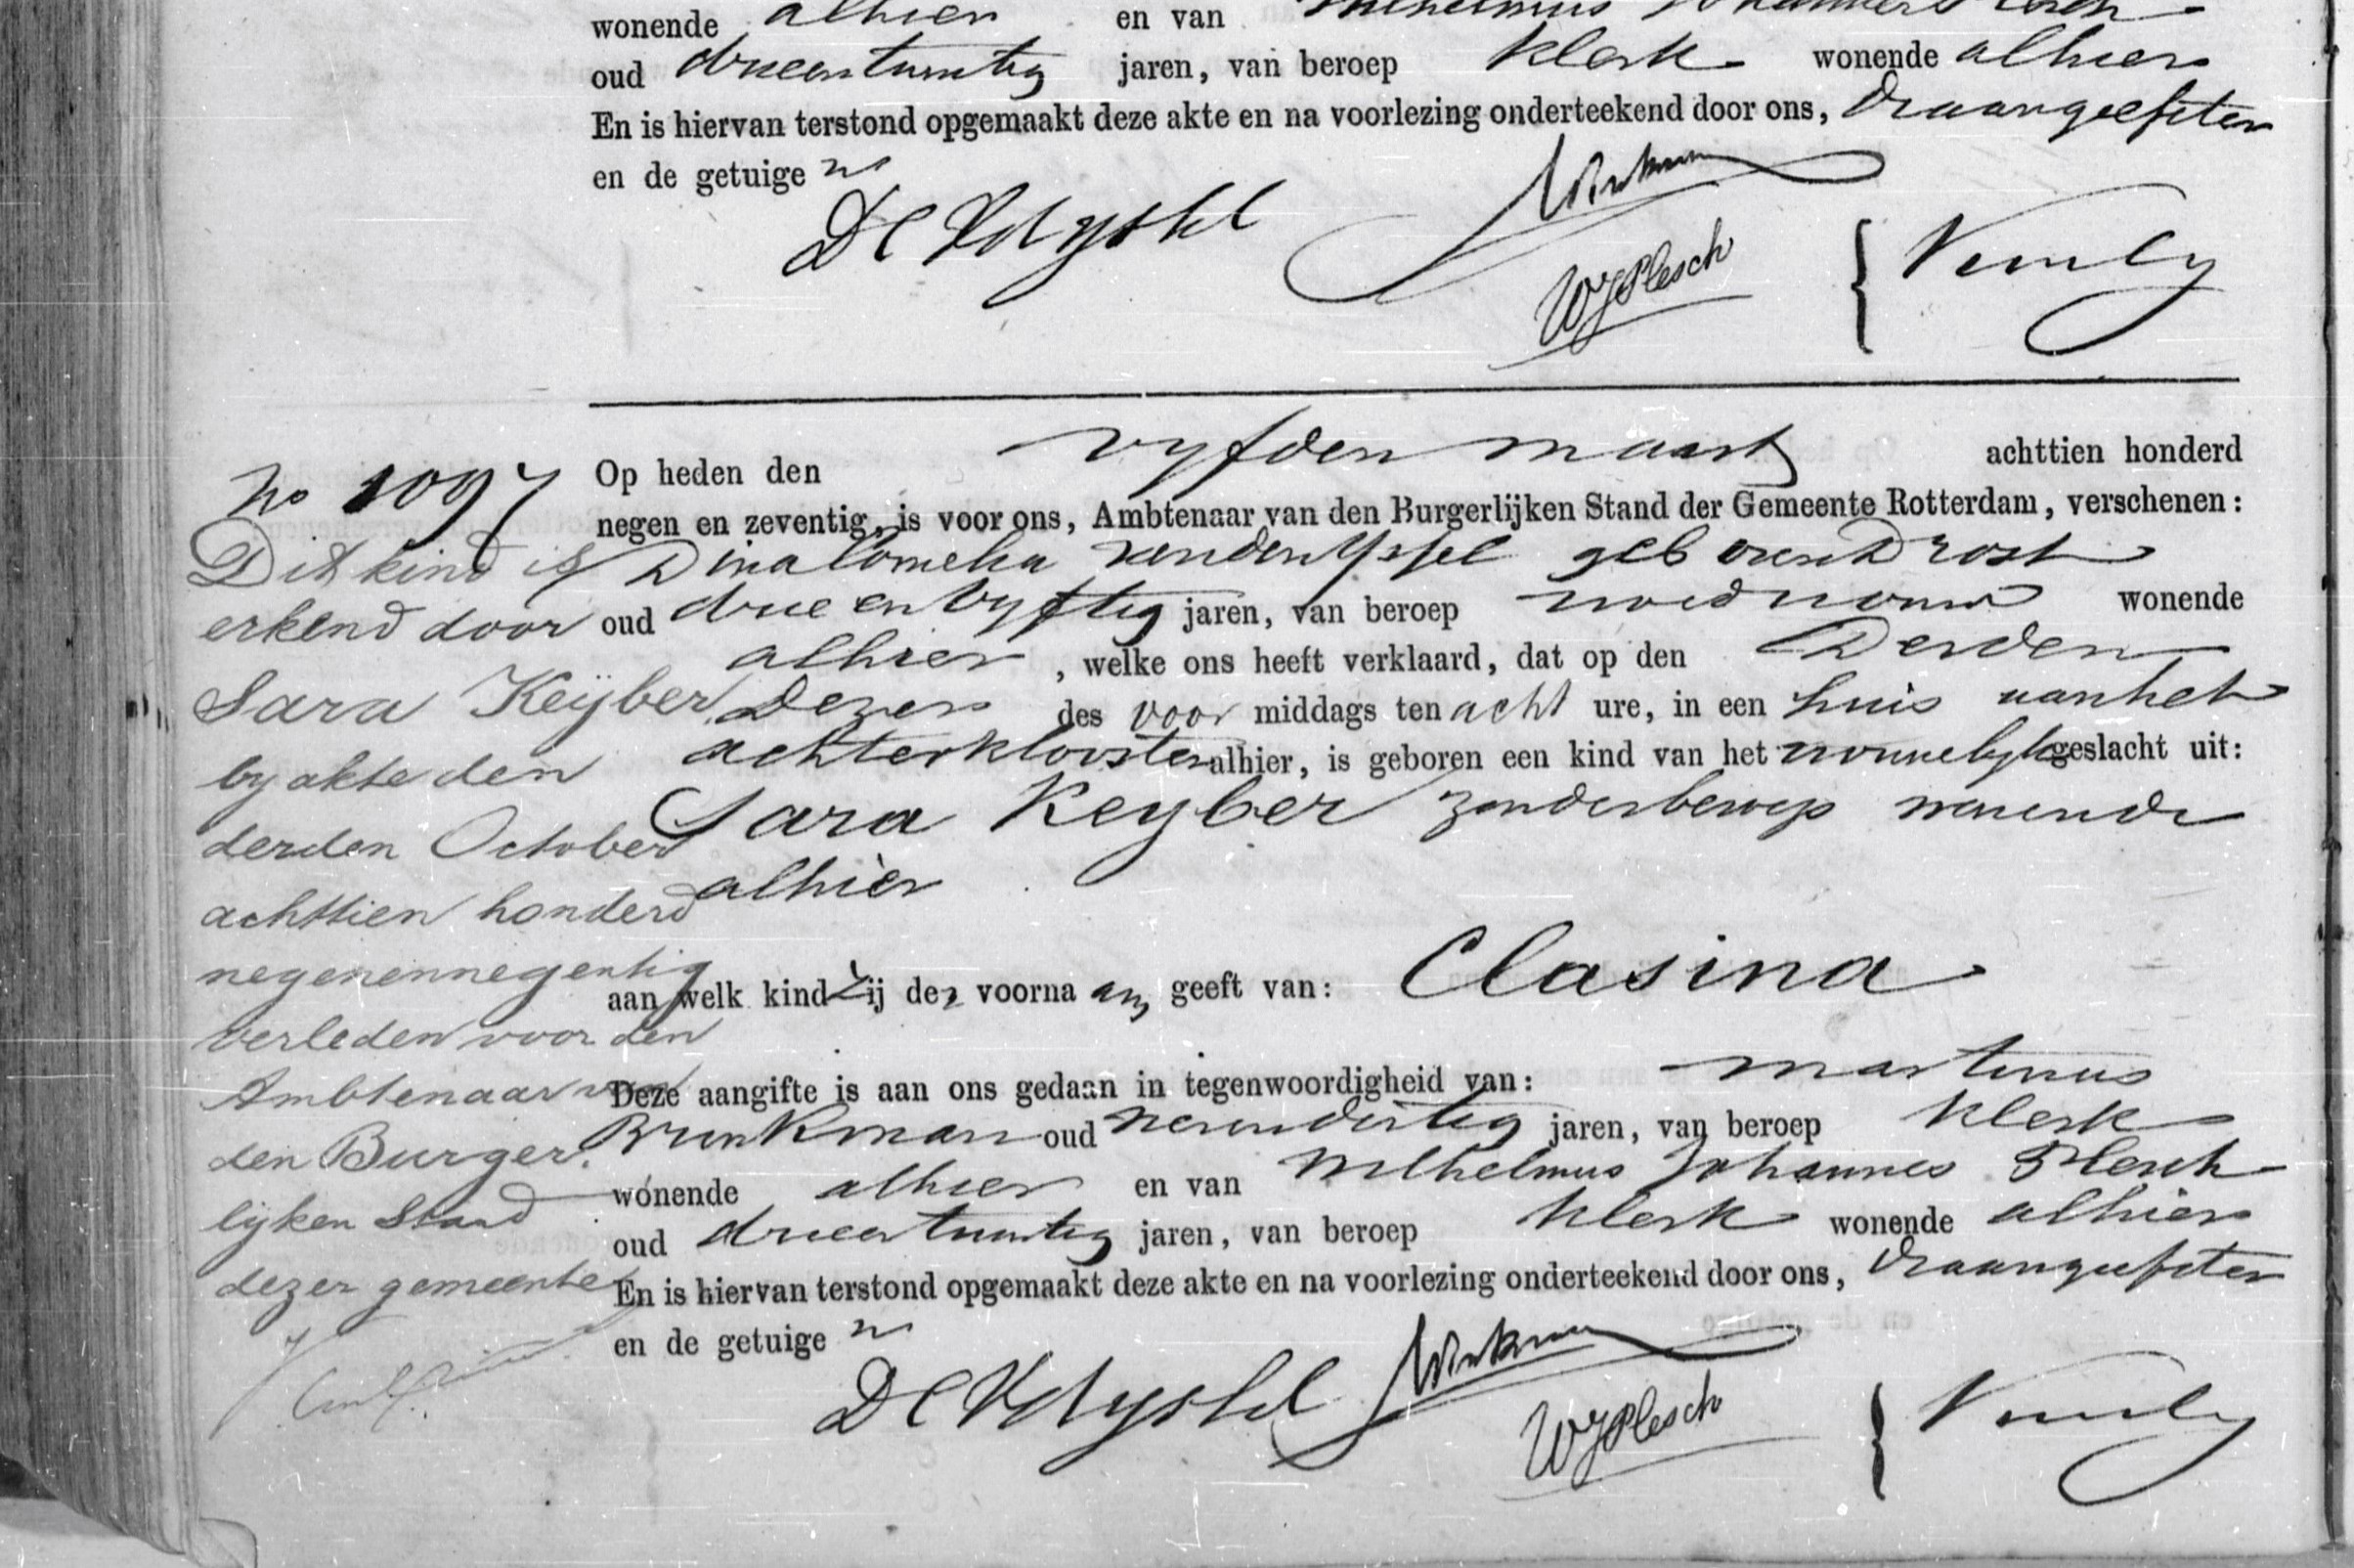 wonende alhier en van Wilhelmus Johannes Plesch
oud drieentwintig jaren, van beroep klerk wonende alhier
En is hiervan terstond opgemaakt deze akte en na voorlezing onderteekend door ons, de aangeefster
en de getuige n
WJPlesch
No 1097
Op heden den vyfden maart achttien honderd
negen en zeventig, is voor ons, Ambtenaar van den Burgerlijken Stand der Gemeente Rotterdam, verschenen:
Dina Cornelia van den Yssel geboren Drost
oud drie en vyftig jaren, van beroep vroedvrouw wonende
alhier, welke ons heeft verklaard, dat op den Derden
dezer des voor middags ten acht ure, in een huis aan het
achterklooster alhier, is geboren een kind van het vrouwelyk geslacht uit:
Sara Keyber zonder beroep wonende
alhier
aan welk kind Zij den voorna am geeft van: Clasina
Deze aangifte is aan ons gedaan in tegenwoordigheid van: Martinus
Brinkman oud vierendertig jaren, van beroep klerk
wonende alhier en van Wilhelmus Johannes Plesch
oud drieentwintig jaren, van beroep klerk wonende alhier
En is hiervan terstond opgemaakt deze akte en na voorlezing onderteekend door ons, de aangeefster
en de getuige n
WJPlesch
Dit kind is
erkend door
Sara Keÿber
by akte den
derden October
achttien honderd
negenennegentig
verleden voor den
Ambtenaar van
den Burger.
lijken Stand
dezer gemeente